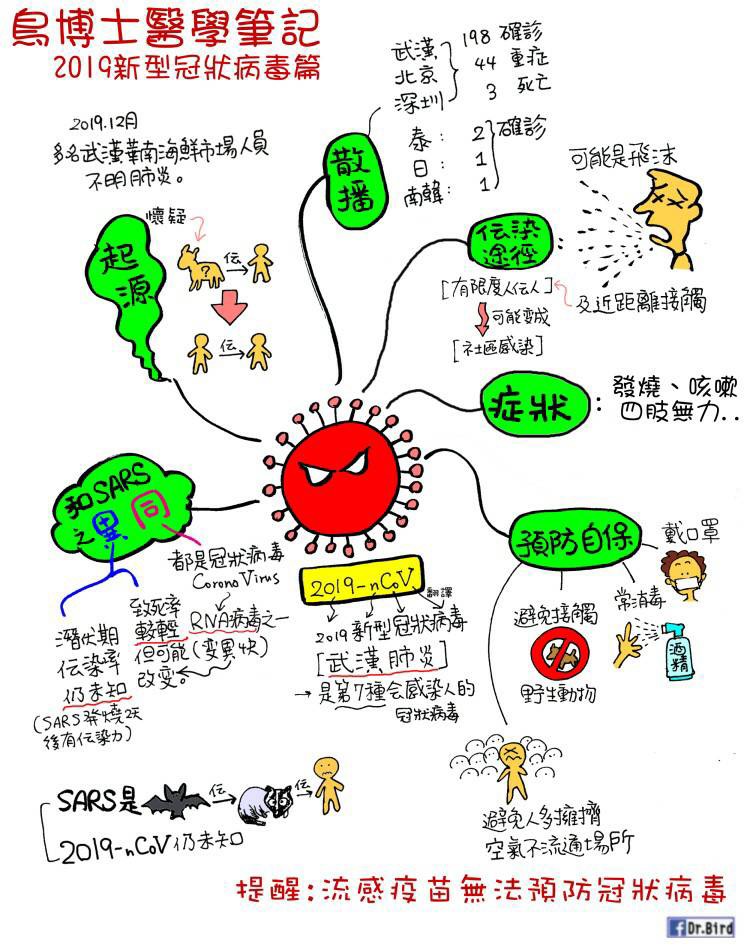 鳥博士醫學筆記
2019新型冠狀病毒篇
2019.12月
多名武漢華南海鮮市場人員
不明肺炎。
起源
懷疑
?
伝
伝
散播
武漢
北京
深圳
198 確診
44 重症
3 死亡
泰: 2
日: 1
南韓: 1
確診
伝染
途徑
可能是飛沫
及近距離接觸
[有限度人伝人]
可能变成
[社區感染]
症狀
:發燒、咳嗽
四肢無力..
預防自保
戴口罩
常消毒
酒精
避免接觸
野生動物
避免人多擁擠
空氣不流通場所
和SARS
之異同
都是冠狀病毒
CoronaVirus
RNA病毒之一
(变異快)
致死率
較輕
但可能
改变。
潛伏期
伝染率
仍未知
(SARS発燒2天
後有伝染力)
2019-nCoV
翻譯
2019新型冠狀病毒
[武漢肺炎]
→是第7種会感染人的
冠狀病毒
SARS是
伝
伝
2019-nCoV仍未知
提醒:流感疫苗無法預防冠狀病毒
f Dr.Bird